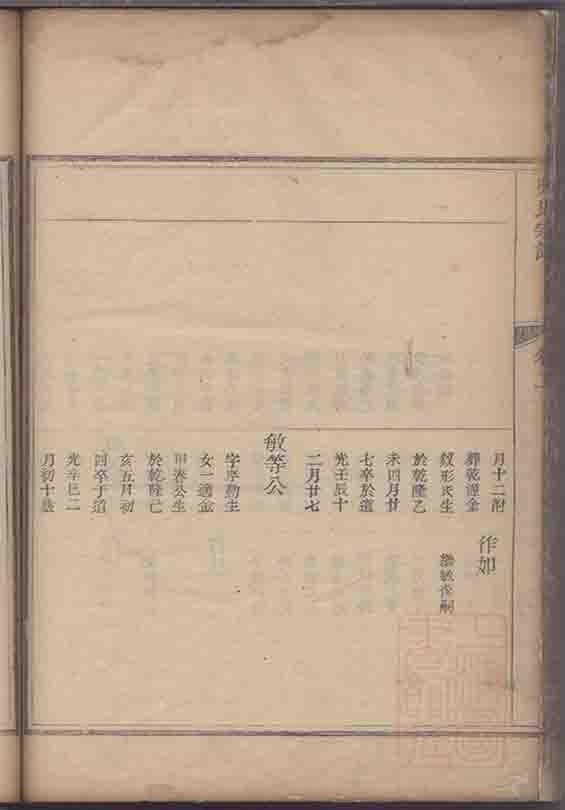 卷一
月十二附
葬乾潭金
釵形氏生
於乾隆乙
未四月廿
七卒於道
光壬辰十
二月廿七
作如
繼敏俊嗣
敏等公
字序勳生
女一適金
公生
於乾隆己
亥五月初
四卒于道
光辛巳二
月初十